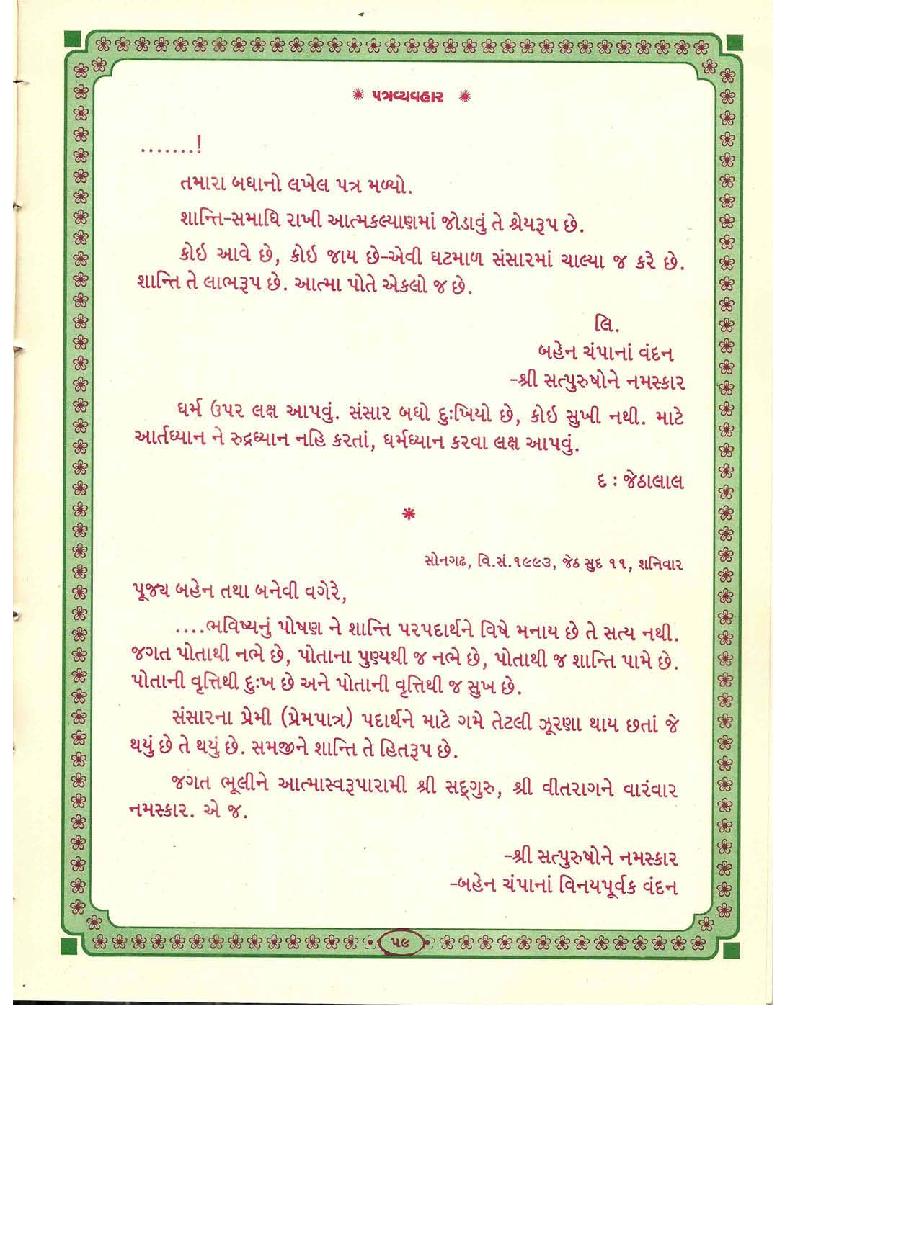 * પત્રવ્યવહાર *
.......!
તમારા બધાનો લખેલ પત્ર મળ્યો.
શાન્તિ-સમાધિ રાખી આત્મકલ્યાણમાં જોડાવું તે શ્રેયરૂપ છે.
કોઇ આવે છે, કોઇ જાય છે-એવી ઘટમાળ સંસારમાં ચાલ્યા જ કરે છે.
શાન્તિ તે લાભરૂપ છે. આત્મા પોતે એકલો જ છે.
લિ.
બહેન ચંપાનાં વંદન
-શ્રી સત્પુરુષોને નમસ્કાર
ધર્મ ઉપર લક્ષ આપવું. સંસાર બધો દુઃખિયો છે, કોઇ સુખી નથી. માટે
આર્તધ્યાન ને રુદ્રધ્યાન નહિ કરતાં, ધર્મધ્યાન કરવા લક્ષ આપવું.
દ : જેઠાલાલ
*
સોનગઢ, વિ.સં.૧૯૯૩, જેઠ સુદ ૧૧, શનિવાર
પૂજ્ય બહેન તથા બનેવી વગેરે,
....ભવિષ્યનું પોષણ ને શાન્તિ પરપદાર્થને વિષે મનાય છે તે સત્ય નથી.
જગત પોતાથી નભે છે, પોતાના પુણ્યથી જ નભે છે, પોતાથી જ શાન્તિ પામે છે.
પોતાની વૃત્તિથી દુઃખ છે અને પોતાની વૃત્તિથી જ સુખ છે.
સંસારના પ્રેમી (પ્રેમપાત્ર) પદાર્થને માટે ગમે તેટલી ઝૂરણા થાય છતાં જે
થયું છે તે થયું છે. સમજીને શાન્તિ તે હિતરૂપ છે.
જગત ભૂલીને આત્માસ્વરૂપારામી શ્રી સદ્‌ગુરુ, શ્રી વીતરાગને વારંવાર
નમસ્કાર. એ જ.
-શ્રી સત્પુરુષોને નમસ્કાર
-બહેન ચંપાનાં વિનયપૂર્વક વંદન
૫૯